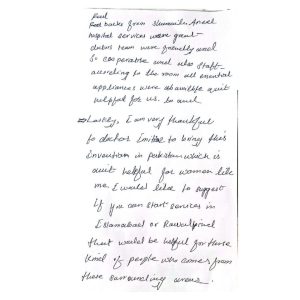 Feed
backs from Shumaila Aneel
hospital services were great
doctors team were friendly and
so cooperative and also staff
according to the room all essential
appliances were also quit
helpful for us. to and
⇒ Lastly, I am very thankful
to doctors to bring this
invention in pakistan which is
quit helpful for women like
me. I would like to suggest
if you can start services in
Islamabad or Rawalpindi
that would be helpful for those
kind of people who comes from
these surrounding areas.